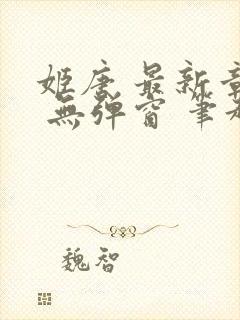 姬唐 最新章
無彈窗 筆
魏智